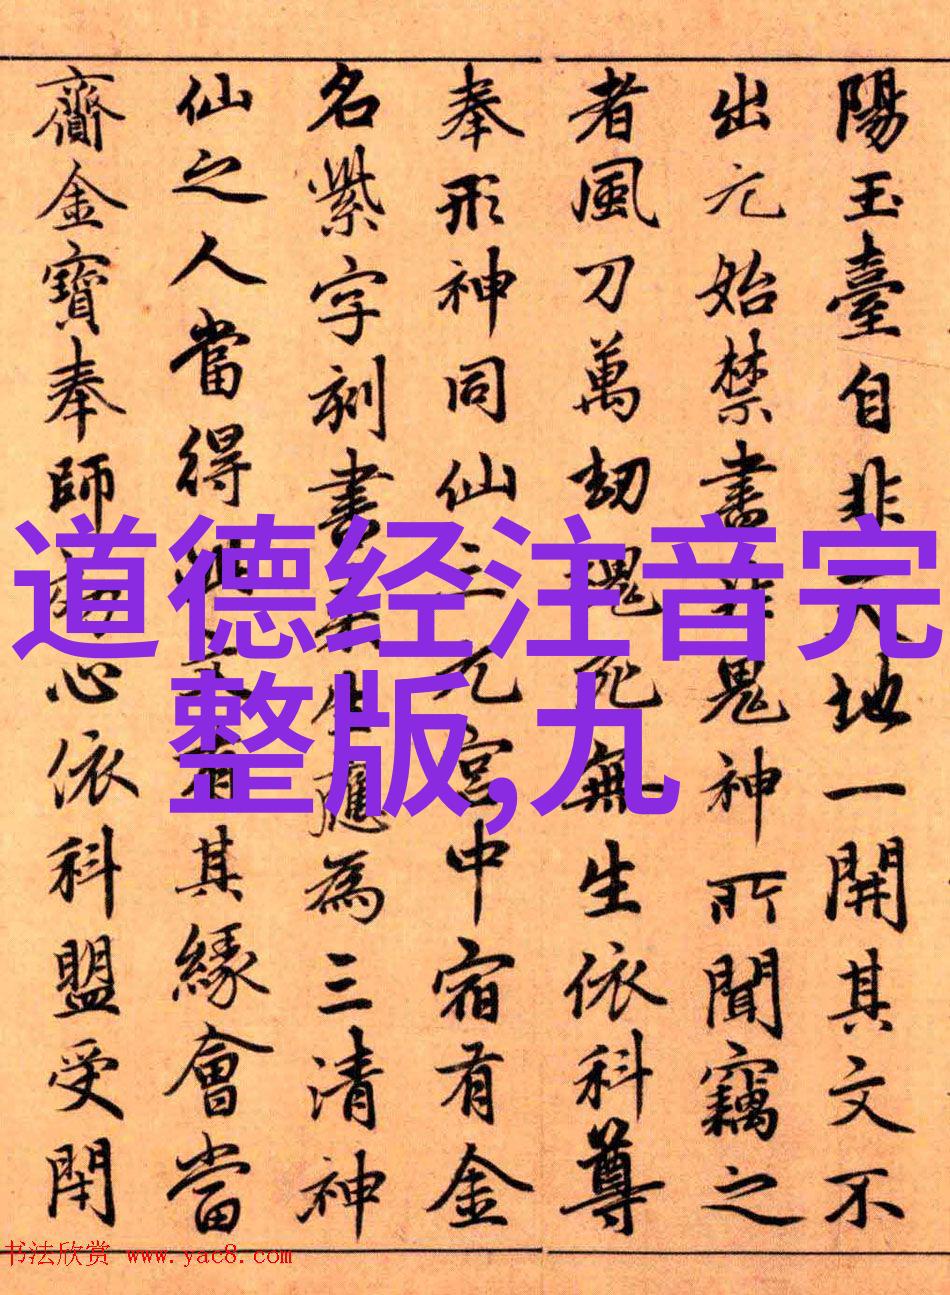 陽玉臺自非天地一開其文不
出元始禁書非鬼神所聞竊之
者風刀萬劫魂死無生依科尊
奉形神同仙三元宮中宿有金
名紫字刻書來生應為三清神
仙之人當得此文有其緣會當
齎金寶奉師心依科盟受閇
道德经注音完
整版,九
书法欣赏 www.yac8.com